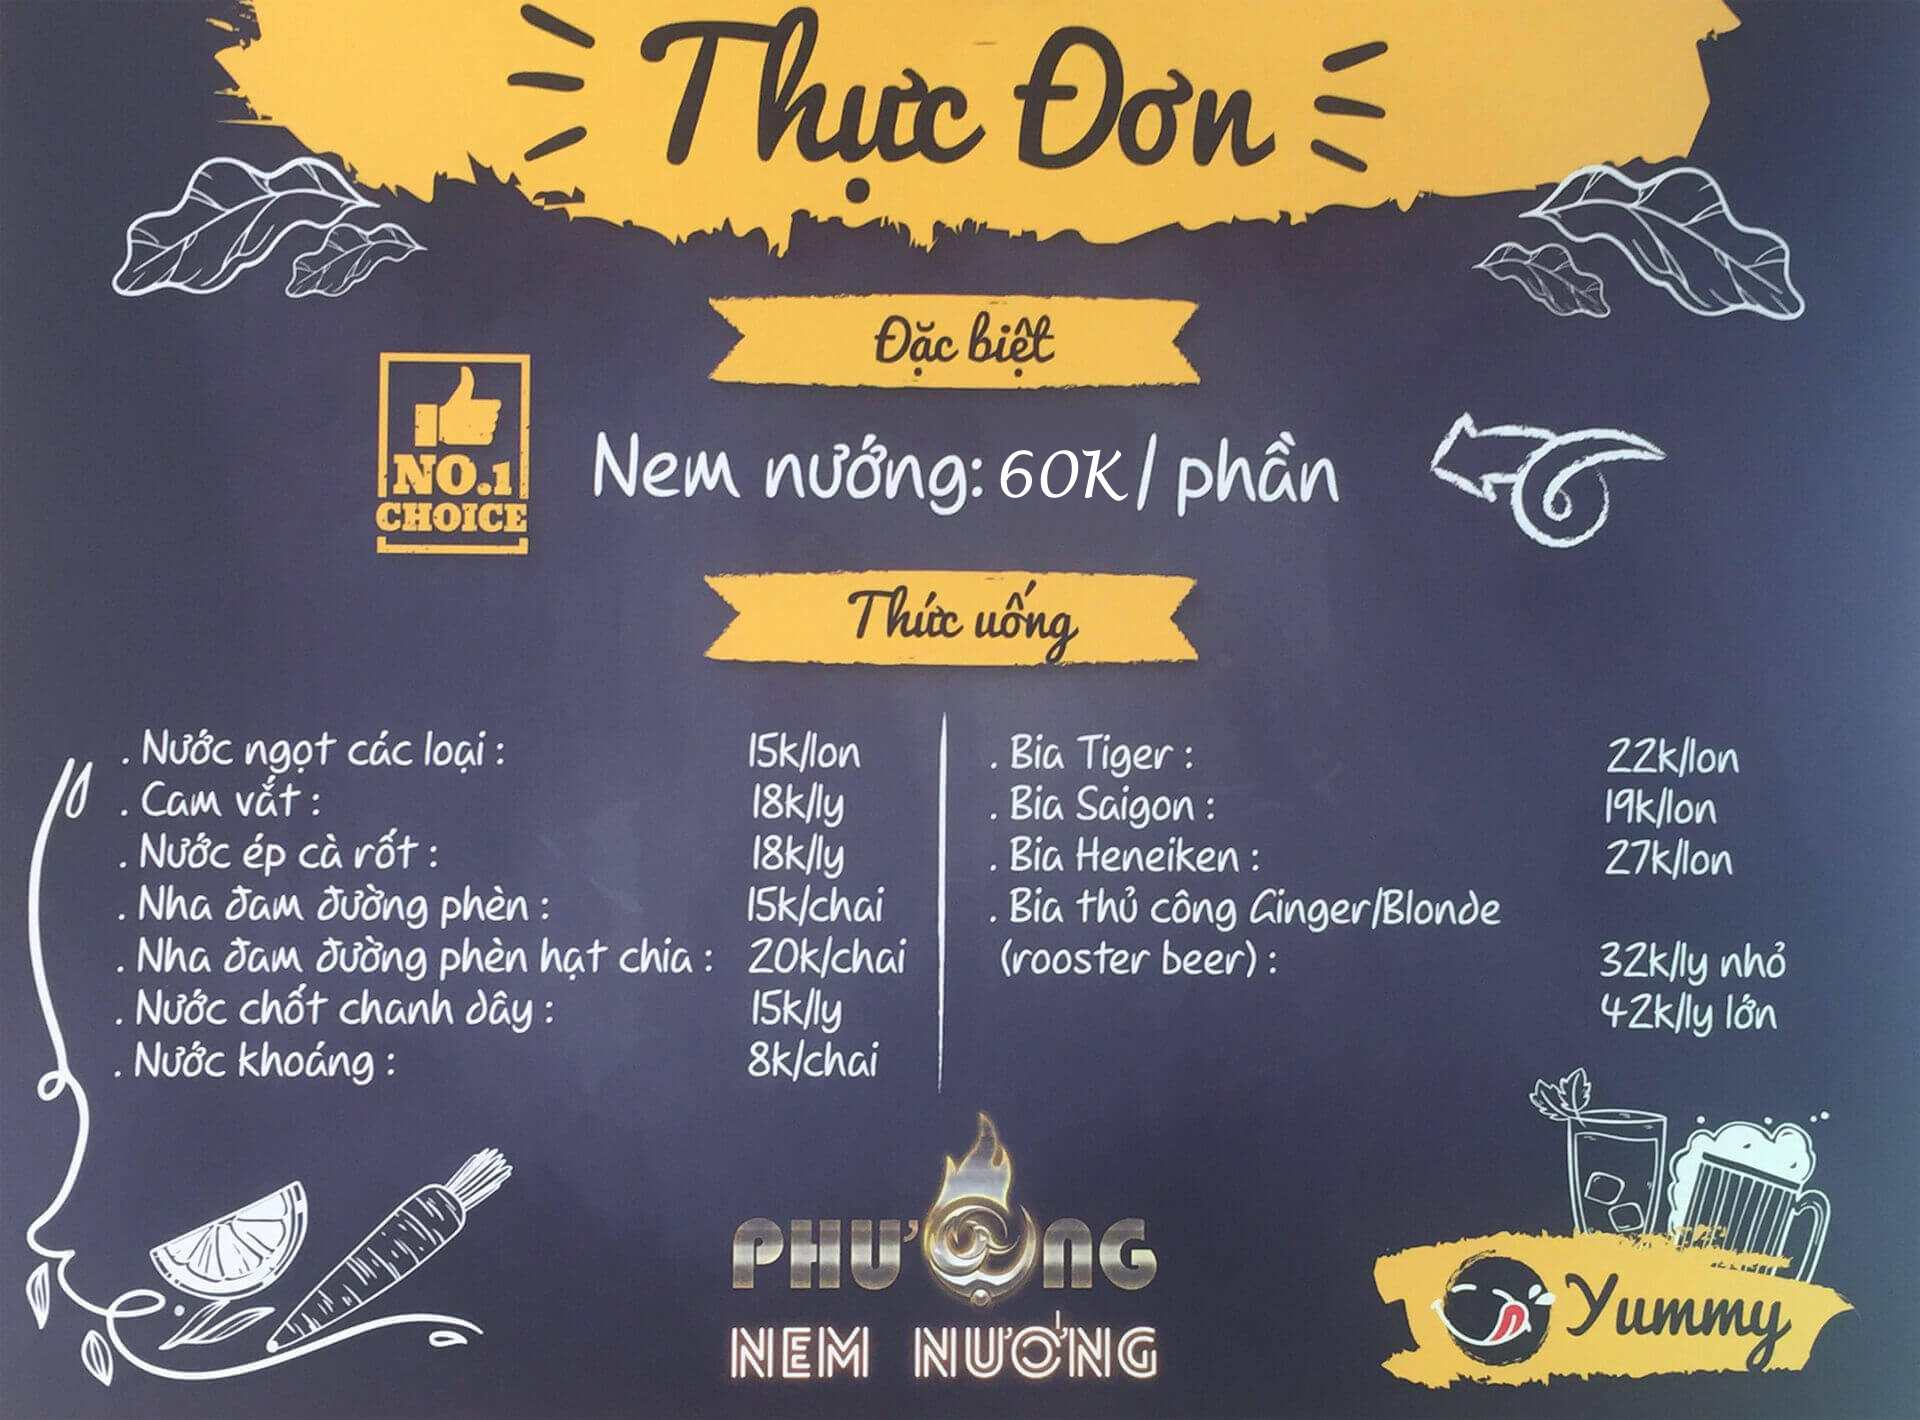 Thực Đơn
Đặc biệt
NO.1
CHOICE
Nem nướng: 60K / phần
Thức uống
. Nước ngọt các loại : 15k/lon
. Cam vắt : 18k/ly
. Nước ép cà rốt : 18k/ly
. Nha đam đường phèn : 15k/chai
. Nha đam đường phèn hạt chia : 20k/chai
. Nước chốt chanh dây : 15k/ly
. Nước khoáng : 8k/chai
. Bia Tiger : 22k/lon
. Bia Saigon : 19k/lon
. Bia Heneiken : 27k/lon
. Bia thủ công Ginger/Blonde
(rooster beer) : 32k/ly nhỏ
42k/ly lớn
PHƯỢNG
NEM NƯỚNG
Yummy